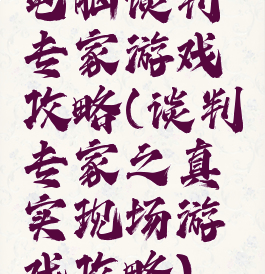 电脑谈判
专家游戏
攻略(谈判
专家之真
实现场游
戏攻略)